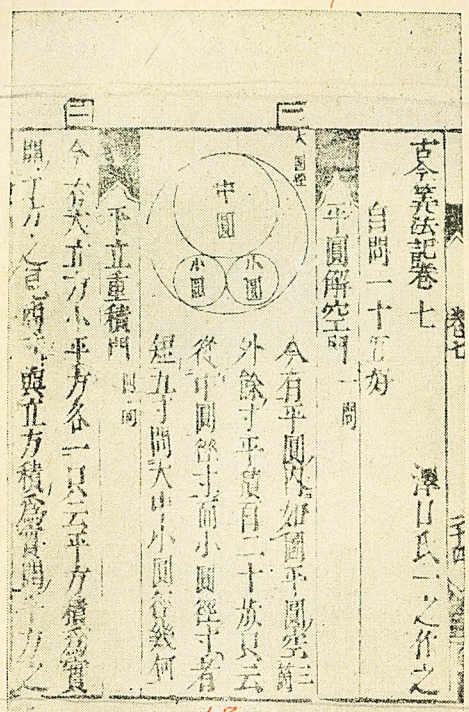 古今筭法記卷七 澤口氏一之作之
自問一十五好
平圓解空門 一問
大圓徑
中圓
小圓
小圓
今有平圓内如圖平圓空三箇
外餘寸平積百二十歩只云
從中圓徑寸而小圓徑寸者
短五寸問大中小圓徑幾何
二
平立重積門 四問
今有大立方小平方各一只云平方積爲實
開立方之見商寸與立方積爲實開平方之
卷七